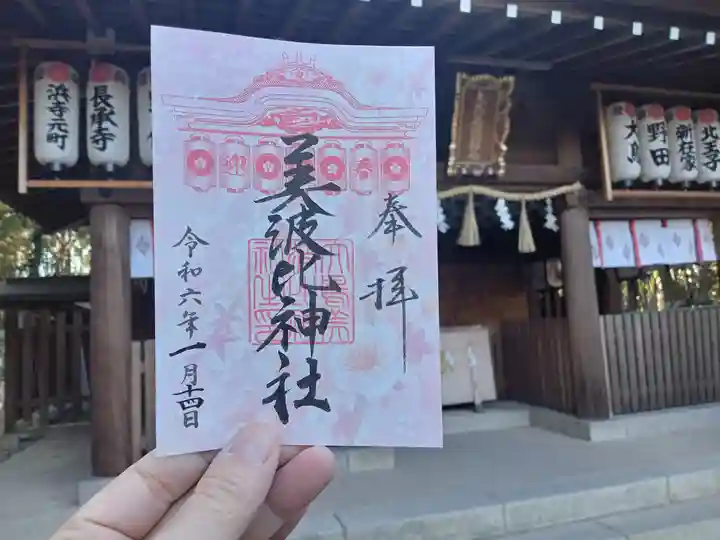 奉拝
美波比神社
令和六年一月十四日
迎
春
浜寺元町
長承寺
大鳥
野田
新在家
北王子